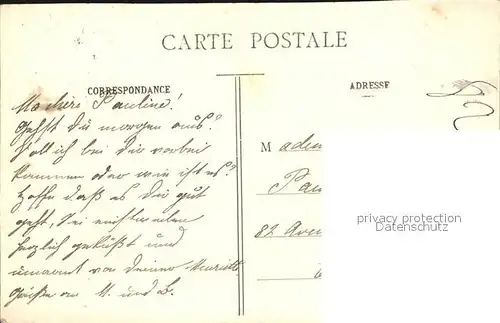 CARTE POSTALE
CORRESPONDANCE
ADRESSE
Ma chère Pauline!
Gehst Du morgen aus?
Soll ich bei Dir vorbei
kommen oder wie ist es?
Hoffe daß es Dir gut
geht, Sei einstweilen
herzlich geküßt und
umarmt von Deiner Henriette
Grüße an M. und L.
Madem
Pau
82 Aven
privacy protection
Datenschutz